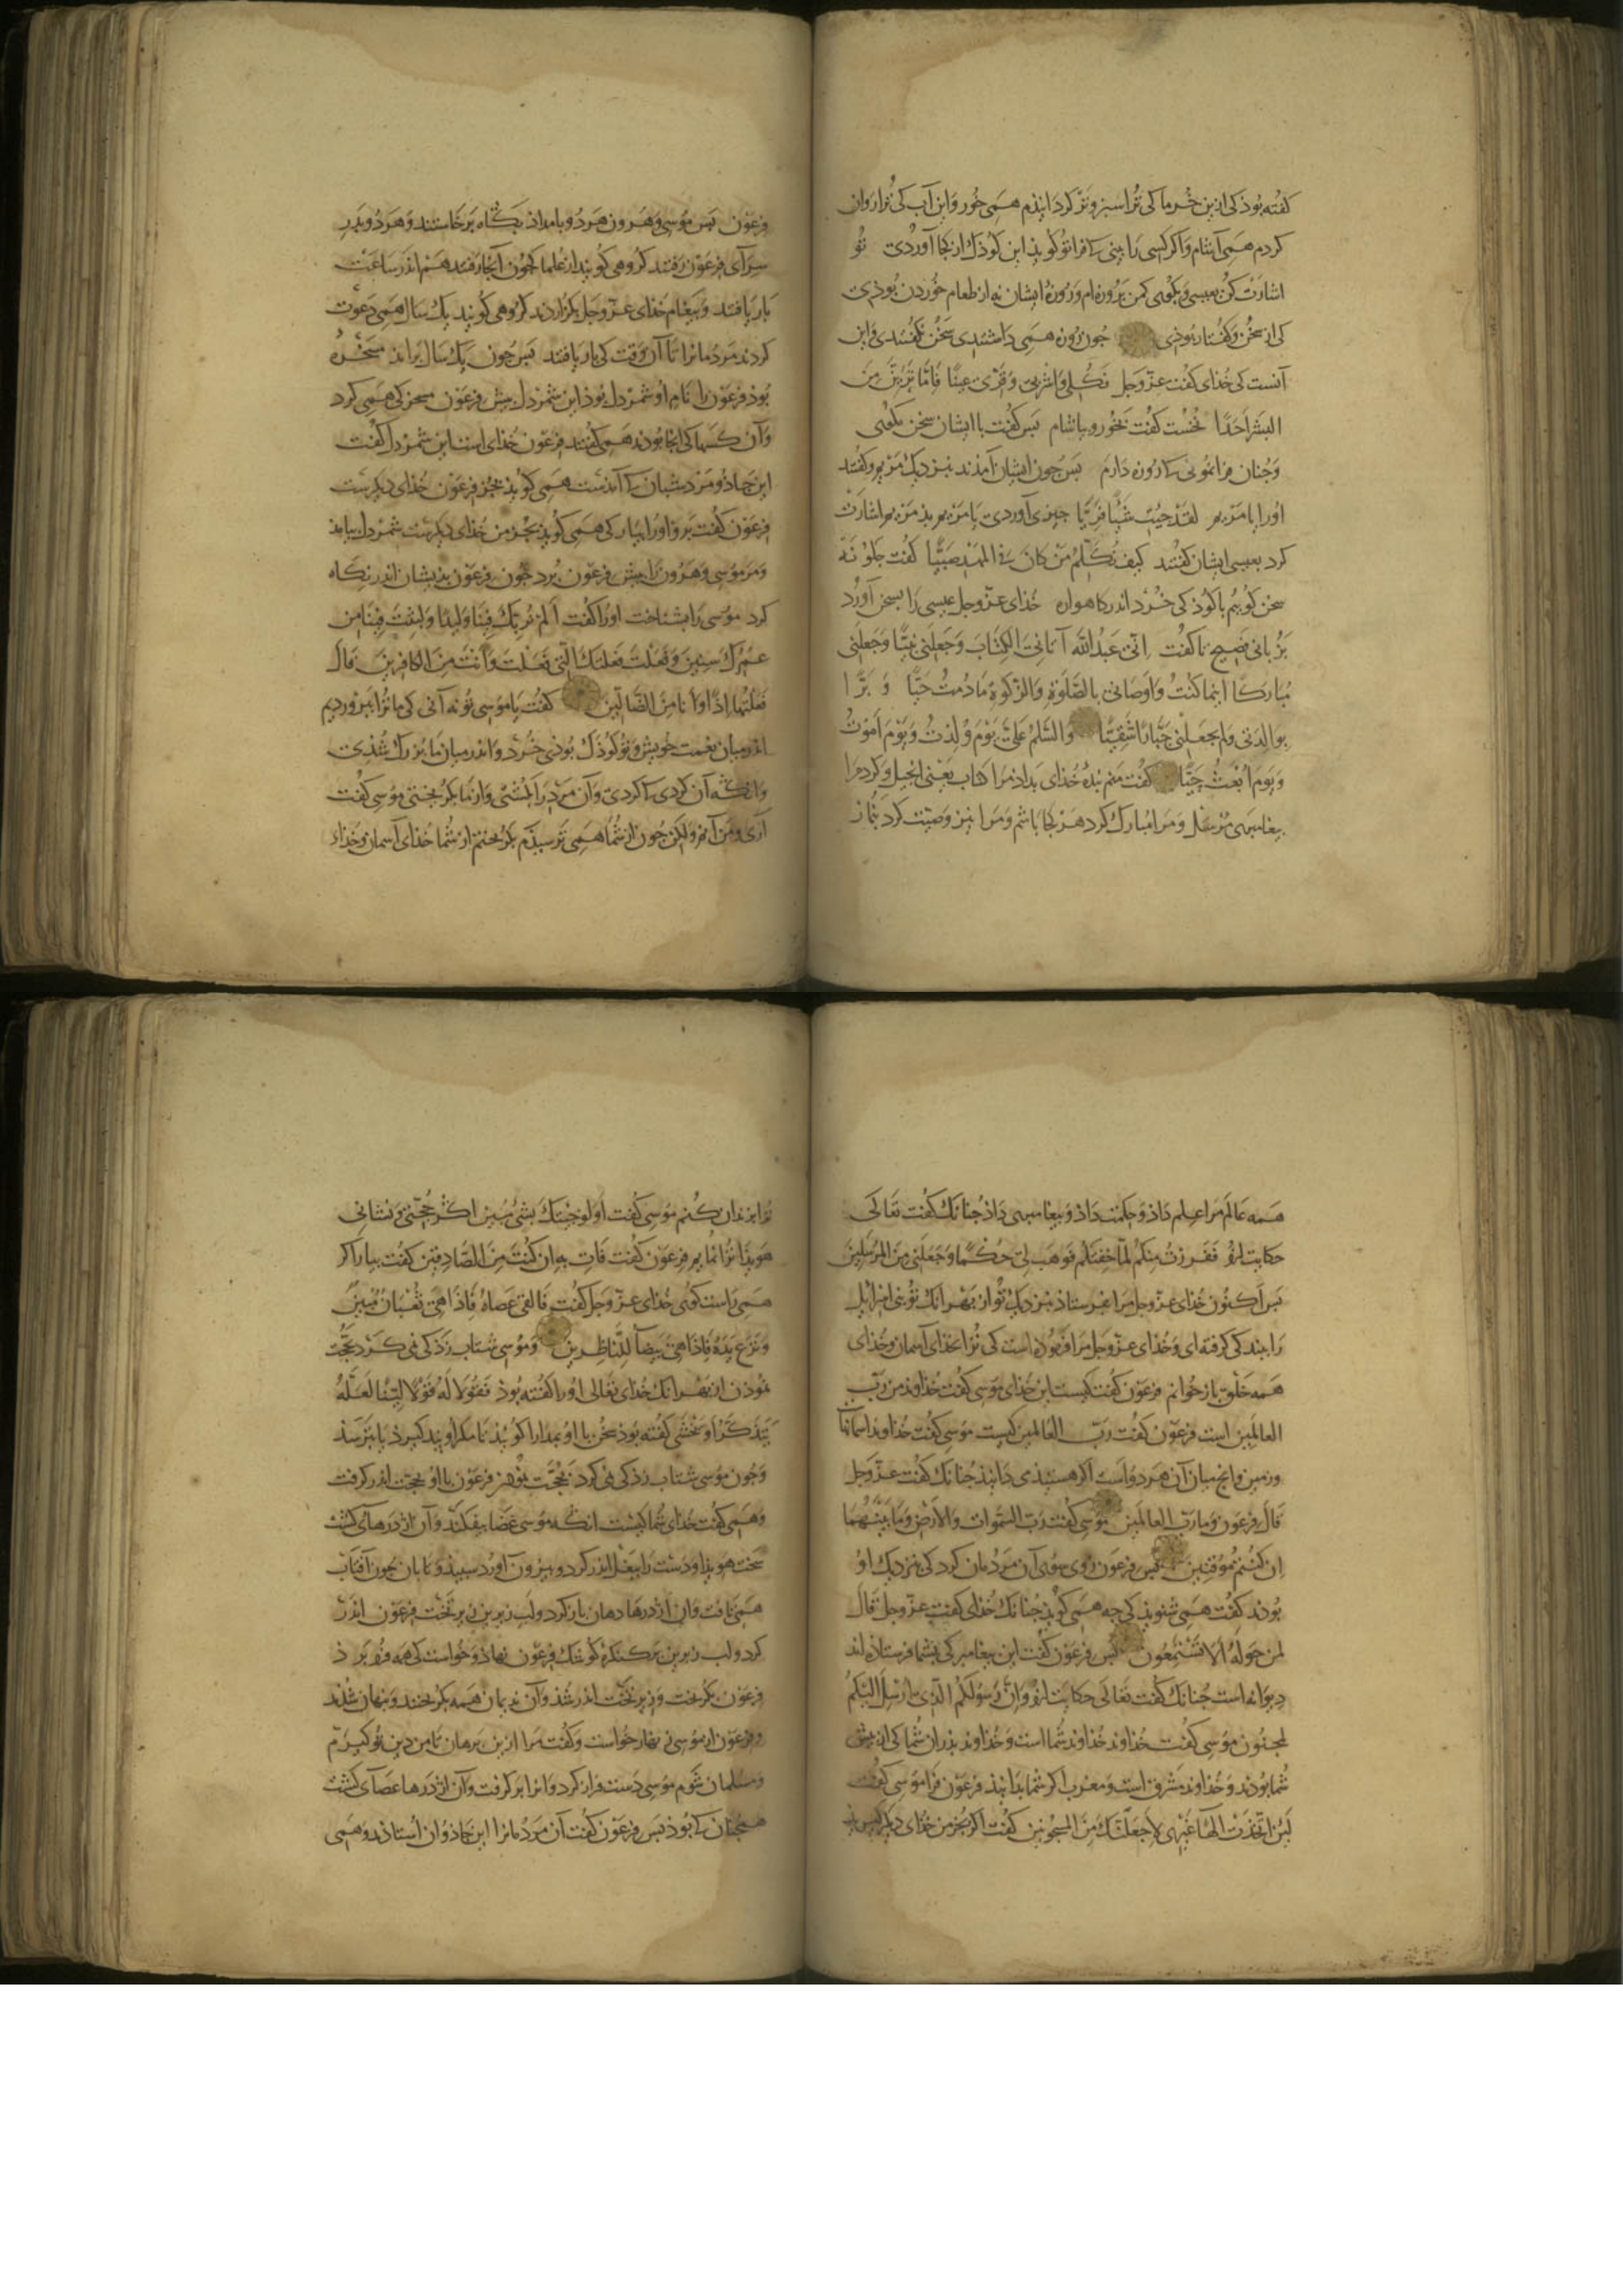 کفته بوذ کی ازین خرما کی ترا سبز و تر کردانیذم همی خور و این آب کی ترا روان
کردم همی آشام و اکر کسی را بینی کی فرا تو کویذ این کوذک از کجا آوردی تو
اشارت کن بعیسی و بکوی کمن بروزه ام و روزۀ ایشان نه از طعام خوردن بوذی
کی از سخن و کفتار بوذی جون روزه همی داشتندی سخن نکفتندی و این
آنست کی خذای کفت عز وجل فکلی واشربی وقری عینا فاما ترین من
البشر احدا نخست کفت بخور و بیاشام بس کفت با ایشان سخن مکوی
و جنان فرا نمونی کی روزه دارم بس جون ایشان آمذند نزدیک مریم و کفتند
اورا یا مریم لقد جئت شیئا فریا جیزی آوردی یا مریم بذ مریم اشارت
کرد بعیسی ایشان کفتند کیف نکلم من کان فی المهد صبیا کفت جکونه
سخن کوییم با کوذکی خرد اندر کاهواره خذای عز وجل عیسی را بسخن آورد
بزبانی فصیح تا کفت انی عبد الله آتانی الکتاب وجعلنی نبیا وجعلنی
مبارکا اینما کنت واوصانی بالصلوة والزکوة ما دمت حیا و برا
بوالدتی ولم یجعلنی جبارا شقیا والسلم علی یوم ولدت ویوم اموت
ویوم ابعث حیا کفت منم بندۀ خذای بداذ مرا کتاب یعنی انجیل و کرد مرا
بیغامبری مرسل و مرا مبارک کرد هر کجا باشم و مرا نیز وصیت کرد بنماز
فرعون بس موسی و هرون هر دو بامداذ بکاه برخاستند و هر دو بدر
سرای فرعون رفتند کروهی کویند از علما کجون آنجا رفتند هم اندر ساعت
بار یافتند و بیغام خذای عز وجل بکزاردند کروهی کویند یک سال همی دعوت
کردند مردمانرا تا آن وقت کی بار یافتند بس جون یک سال برآمد مسخرۀ
بوذ فرعون را نام او شمردل بوذ این شمردل بیش فرعون مسخرکی همی کرد
و آن کسها کی آنجا بوذند همی کفتند فرعون خذای است این شمردل کفت
این جاذو مرد شبان کی آمذست همی کویذ بجز فرعون خذای دیکرست
فرعون کفت برو اورا بیار کی همی کویذ بجز من خذای دیکرست شمردل بیامذ
و مر موسی و هرون را بیش فرعون برد جون فرعون بذیشان اندر نکاه
کرد موسی را بشناخت اورا کفت الم نربک فینا ولیدا ولبثت فینا من
عمرک سنین وفعلت فعلتک التی فعلت وانت من الکافرین قال
فعلتها اذا وانا من الضالین کفت یا موسی تو نه آنی کی ما ترا ببروردیم
اندر میان نعمت خویش و تو کوذک بوذی خرد و اندر میان ما بزرک شذی
وانکه آن کردی کی کردی و آن مرد را بکشتی و از ما بکریختی موسی کفت
آری من آنم ولکن جون از شما همی ترسیذم بکریختم از شما خذای آسمان و خذاء
همه عالم مرا علم داذ و حکمت داذ و بیغامبری داذ جنانک کفت تعالی
حکایت ازو ففررت منکم لما خفتکم فوهب لی حکما وجعلنی من المرسلین
بس اکنون خذای عز وجل مرا بفرستاذ بنزدیک تو از بهر آنک تو بنی اسرائیل
را ببندکی کرفته ای و خذای عز وجل مرا فرموذه است کی ترا بخذای آسمان و خذای
همه خلق باز خوانم فرعون کفت کیست این خذای موسی کفت خذاوند من رب
العالمین است فرعون کفت رب العالمین کیست موسی کفت خذاوند آسمانها
و زمین و انج میان آن هر دو است اکر هستیذی دانیذ جنانک کفت عز وجل
قال فرعون وما رب العالمین موسی کفت رب السموات والارض وما بینهما
ان کنتم موقنین بس فرعون روی سوی آن مردمان کرد کی نزدیک او
بوذند کفت همی شنویذ کی جه همی کویذ جنانک خذای کفت عز وجل قال
لمن حوله الا تستمعون بس فرعون کفت این بیغامبر کی بشما فرستاذه اند
دیوانه است جنانک کفت تعالی حکایت ازو وان رسولکم الذی ارسل الیکم
لمجنون موسی کفت خذاوند خذاوند شما است و خذاوند بذران شما کی از بیش
شما بوذند و خذاوند مشرق است و مغرب اکر شما بدانیذ فرعون فرا موسی کفت
لئن اتخذت الها غیری لاجعلنک من المسجونین کفت اکر بجز من خذای دیکر
ترا بزندان کنم موسی کفت اولو جئتک بشیء مبین اکر حجتی و نشانی
هویذا ترا نمایم فرعون کفت فات به ان کنت من الصادقین کفت بیار اکر
همی راست کوی خذای عز وجل کفت فالقی عصاه فاذا هی ثعبان مبین
ونزع یده فاذا هی بیضآ للناظرین و موسی شتاب زذکی می کرد بحجت
نموذن از بهر آنک خذای تعالی اورا کفته بوذ فقولا له قولا لینا لعله
یتذکر او یخشی کفته بوذ سخن با او بمدارا کویذ تا مکر او بند کیرذ یا بترسذ
و جون موسی شتاب زذکی می کرد بحجت فرعون با او بحجت اندر کرفت
و همی کفت خذای شما کیست انکه موسی عصا بیفکند و آن اژدرهای کشت
سخت هویذا و دست را ببغل اندر کرد و بیرون آورد سبیذ و تابان جون آفتاب
همی تافت و آن اژدرها دهان باز کرد و لب زیرین زیر تخت فرعون اندر
کرد و لب زبرین بر کنکرۀ کوشک فرعون نهاذ و خواست کی همه فرو برذ
فرعون بکریخت و زیر تخت اندر شذ و آن ندیمان همه بکریختند و بنهان شذند
و فرعون از موسی زنهار خواست و کفت مرا ازین برهان تا من دین تو کیرم
و مسلمان شوم موسی دست فراز کرد و انرا بر کرفت و آن اژدرها عصای کشت
همجنان کی بوذ بس فرعون کفت آن مردمانرا این جاذوان استاذند و همی